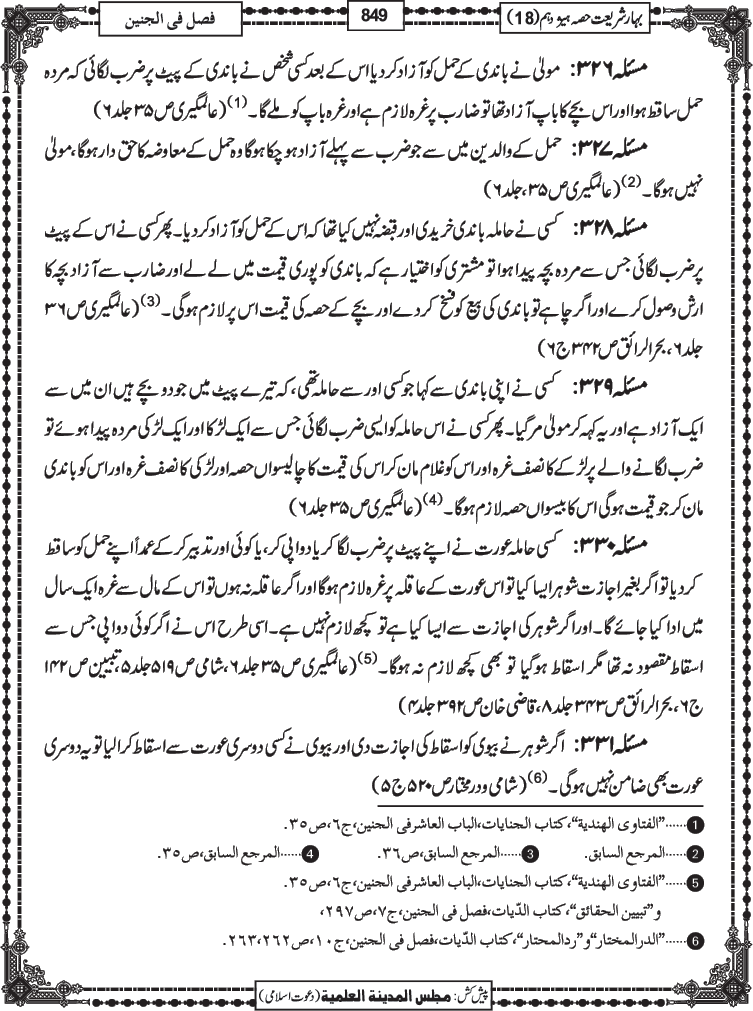 بہار شریعت حصہ ہیژ دہم (18)
849
فصل فی الجنین
مسئلہ ۳۲۶: مولیٰ نے باندی کے حمل کو آزاد کر دیا اس کے بعد کسی شخص نے باندی کے پیٹ پر ضرب لگائی کہ مردہ
حمل ساقط ہوا اور اس بچے کا باپ آزاد تھا تو ضارب پر غرہ لازم ہے اور غرہ باپ کو ملے گا۔(1) (عالمگیری ص ۳۵ جلد ۶)
مسئلہ ۳۲۷: حمل کے والدین میں سے جو ضرب سے پہلے آزاد ہو چکا ہوگا وہ حمل کے معاوضہ کا حق دار ہوگا، مولیٰ
نہیں ہوگا۔(2) (عالمگیری ص ۳۵، جلد ۶)
مسئلہ ۳۲۸: کسی نے حاملہ باندی خریدی اور قبضہ نہیں کیا تھا کہ اس کے حمل کو آزاد کر دیا۔ پھر کسی نے اس کے پیٹ
پر ضرب لگائی جس سے مردہ بچہ پیدا ہوا تو مشتری کو اختیار ہے کہ باندی کو پوری قیمت میں لے لے اور ضارب سے آزاد بچہ کا
ارش وصول کرے اور اگر چاہے تو باندی کی بیع کو فسخ کر دے اور بچے کے حصہ کی قیمت اس پر لازم ہوگی۔(3) (عالمگیری ص ۳۶
جلد ۶، بحرالرائق ص ۳۴۲ ج ۶)
مسئلہ ۳۲۹: کسی نے اپنی باندی سے کہا جو کسی اور سے حاملہ تھی، کہ تیرے پیٹ میں جو دو بچے ہیں ان میں سے
ایک آزاد ہے اور یہ کہہ کر مولیٰ مر گیا۔ پھر کسی نے اس حاملہ کو ایسی ضرب لگائی جس سے ایک لڑکا اور ایک لڑکی مردہ پیدا ہوئے تو
ضرب لگانے والے پر لڑکے کا نصف غرہ اور اس کو غلام مان کر اس کی قیمت کا چالیسواں حصہ اور لڑکی کا نصف غرہ اور اس کو باندی
مان کر جو قیمت ہوگی اس کا بیسواں حصہ لازم ہوگا۔(4) (عالمگیری ص ۳۵ جلد ۶)
مسئلہ ۳۳۰: کسی حاملہ عورت نے اپنے پیٹ پر ضرب لگا کر یا دوا پی کر، یا کوئی اور تدبیر کر کے عمداً اپنے حمل کو ساقط
کر دیا تو اگر بغیر اجازت شوہر ایسا کیا تو اس عورت کے عاقلہ پر غرہ لازم ہوگا اور اگر عاقلہ نہ ہوں تو اس کے مال سے غرہ ایک سال
میں ادا کیا جائے گا۔ اور اگر شوہر کی اجازت سے ایسا کیا ہے تو کچھ لازم نہیں ہے۔ اسی طرح اس نے اگر کوئی دوا پی جس سے
اسقاط مقصود نہ تھا مگر اسقاط ہوگیا تو بھی کچھ لازم نہ ہوگا۔(5) (عالمگیری ص ۳۵ جلد ۶، شامی ص ۵۱۹ جلد ۵، تبیین ص ۱۴۲
ج ۶، بحرالرائق ص ۳۴۳ جلد ۸، قاضی خان ص ۳۹۲ جلد ۴)
مسئلہ ۳۳۱: اگر شوہر نے بیوی کو اسقاط کی اجازت دی اور بیوی نے کسی دوسری عورت سے اسقاط کرا لیا تو یہ دوسری
عورت بھی ضامن نہیں ہوگی۔(6) (شامی و درمختار ص ۵۲۰ ج ۵)
1 ......"الفتاوی الھندیۃ"، کتاب الجنایات، الباب العاشرفی الجنین، ج ۶، ص ۳۵.
2 ......المرجع السابق. 3 ......المرجع السابق، ص ۳۶. 4 ......المرجع السابق، ص ۳۵.
5 ......"الفتاوی الھندیۃ"، کتاب الجنایات، الباب العاشرفی الجنین، ج ۶، ص ۳۵.
و"تبیین الحقائق"، کتاب الدّیات، فصل فی الجنین، ج ۷، ص ۲۹۷،
6 ......"الدرالمختار" و"ردالمحتار"، کتاب الدّیات، فصل فی الجنین، ج ۱۰، ص ۲۶۲، ۲۶۳.
پیش کش: مجلس المدینۃ العلمیۃ (دعوت اسلامی)